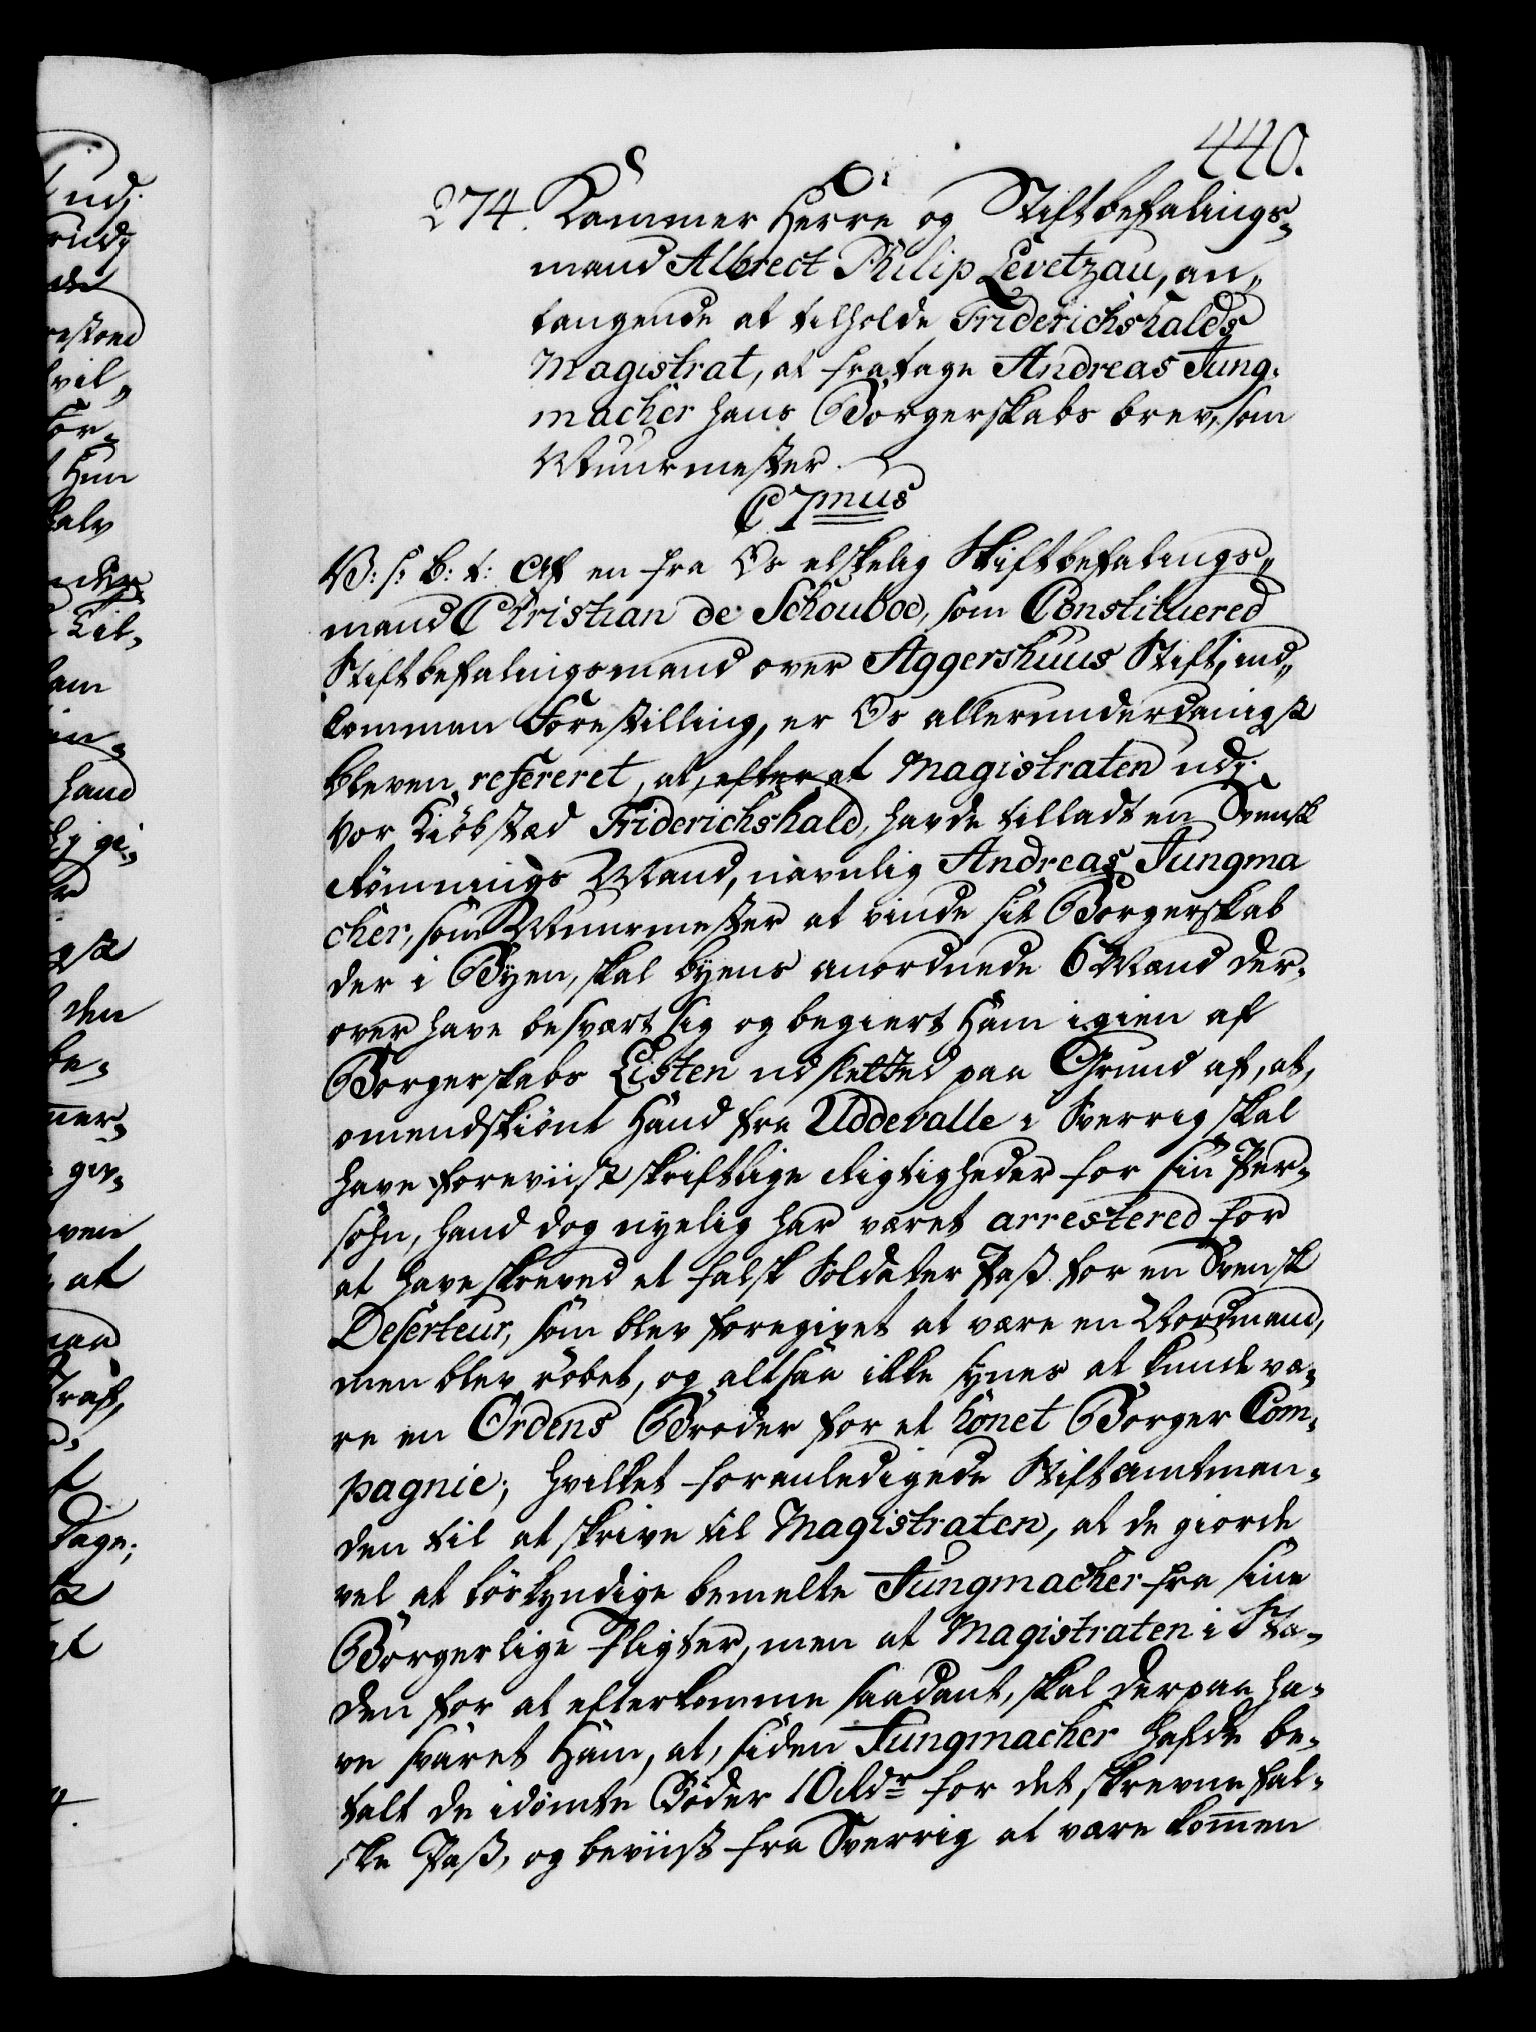 440.
274. Kammer Herre og Stiftbefalings-
mand Albrect Philip Levetzau, an-
langende at tilholde Friderichshalds
Magistrat, at fratage Andreas Jung-
macher hans Borgerskabs brev, som
Muurmester.
C 7mus
V: s: B: t: Af en fra Os elskelig Stiftbefalings-
mand Christian de Schouboe, som Constituered
Stiftbefalingsmand over Aggershuus Stift, ind-
kommen Forestilling, er Os allerunderdanigst
bleven refereret, at, efter at Magistraten udj
Vor Kiöbstæd Friderichshald, havde tilladt en Svensk
Rømnings Mand, navnlig Andreas Jungma
cher, som Muurmester at vinde sit Borgerskab
der i Byen, skal byens anordnede 6 Mænd der-
over have besvært sig og begiert Ham igien af
Borgerskabs Listen udsletted paa Grund af, at,
omendskiönt Hand fra Uddevalle i Sverrig skal
have foreviist skriftlige Rigtigheder for sin Per-
sohn, hand dog nyelig har været arrestered for
at have skreved et falsk Soldater Pass for en Svensk
Deserteur, som blev foregivet at være en Nordmand,
men blev röbet, og altsaa ikke synes at kunde væ-
re en Ordens Broder for et honet Borger Com-
pagnie; hvilket foranledigede Stiftamtman-
den til at skrive til Magistraten, at de giorde
vel at forkyndige bemelte Jungmacher fra sine
Borgerlige Pligter, men at Magistraten i Stæ-
den for at efterkomme saadant, skal derpaa ha-
ve svaret Ham, at, siden Jungmacher hafde be-
talt de idömte Böder 10 Rdr for det skrevne fal-
ske Pass, og beviist fra Sverrig at være kommen